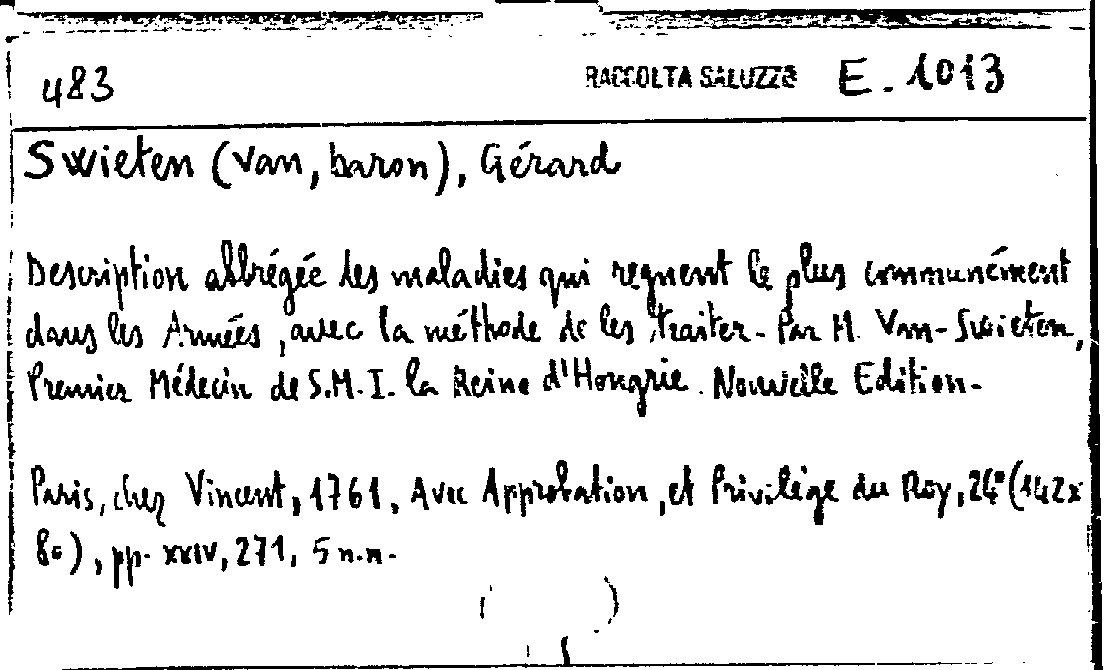 483 RACCOLTA SALUZZO E. 1013
Swieten (van, baron), Gérard
Description abbrégée des maladies qui regnent le plus communément
dans les Armées, avec la méthode de les traiter. Par M. Van-Swieten,
Premier Médecin de S.M.I. la Reine d'Hongrie. Nouvelle Edition.
Paris, chez Vincent, 1761, Avec Approbation, et Privilège du Roy, 24° (142x
80), pp. xxiv, 271, 5 n.n.
( )